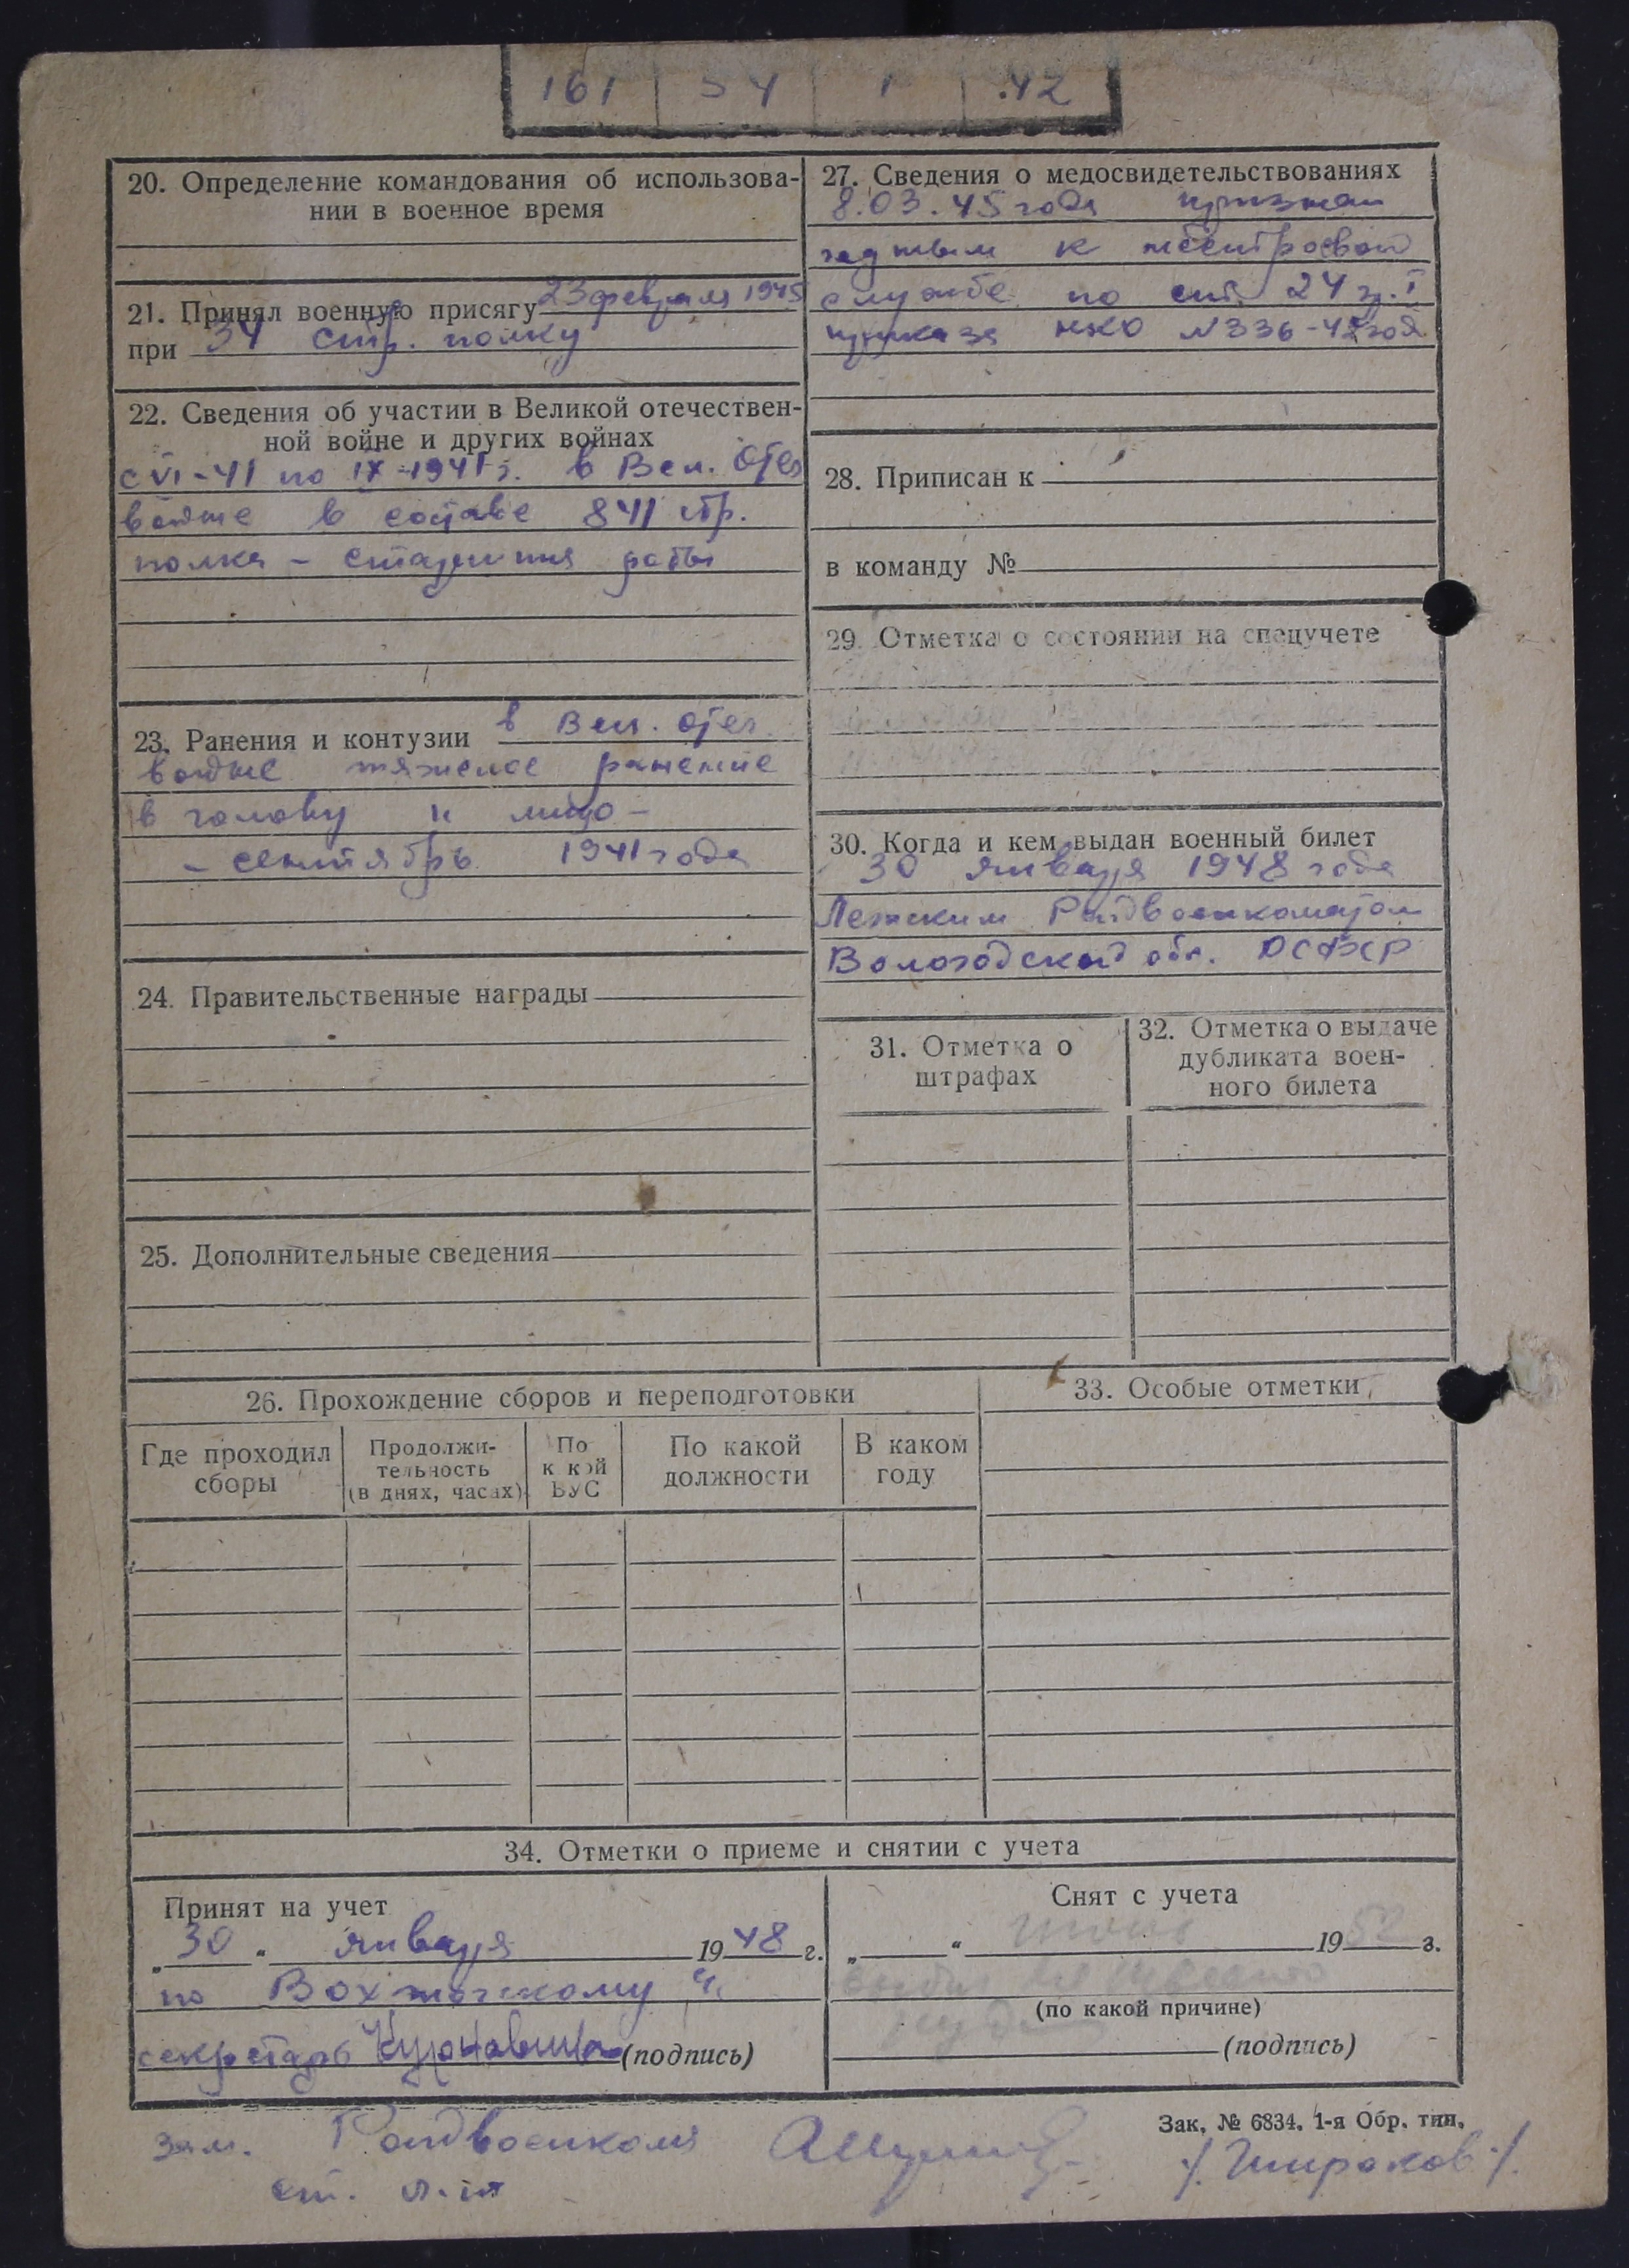 161 54 1 .42
20. Определение командования об использова-
нии в военное время
21. Принял военную присягу 23 февраля 1945
при 34 стр. полку
22. Сведения об участии в Великой отечествен-
ной войне и других войнах
с VI-41 по IX-1941 г. в Вел. Отеч
войне в составе 841 стр.
полка - старшина роты
23. Ранения и контузии в Вел. отеч.
войне тяжелое ранение
в голову и лицо -
- сентябрь 1941 года
24. Правительственные награды
25. Дополнительные сведения
27. Сведения о медосвидетельствованиях
8.03.45 года признан
годным к нестроевой
службе по ст. 24 гр. I
приказа НКО N 336-42 год
28. Приписан к
в команду №
29. Отметка о состоянии на спецучете
30. Когда и кем выдан военный билет
30 января 1948 года
Лежским Райвоенкоматом
Вологодской обл. РСФСР
31. Отметка о
штрафах
32. Отметка о выдаче
дубликата воен-
ного билета
26. Прохождение сборов и переподготовки
Где проходил
сборы
Продолжи-
тельность
(в днях, часах)
По
к кой
ВУС
По какой
должности
В каком
году
33. Особые отметки
34. Отметки о приеме и снятии с учета
Принят на учет
„30" января 1948 г.
по Вохтожскому
секретарь (подпись)
Снят с учета
„ " 1952 г.
(по какой причине)
(подпись)
Зак. № 6834. 1-я Обр. тип.
зам. Райвоенкома
ст. л-т
/Широков/